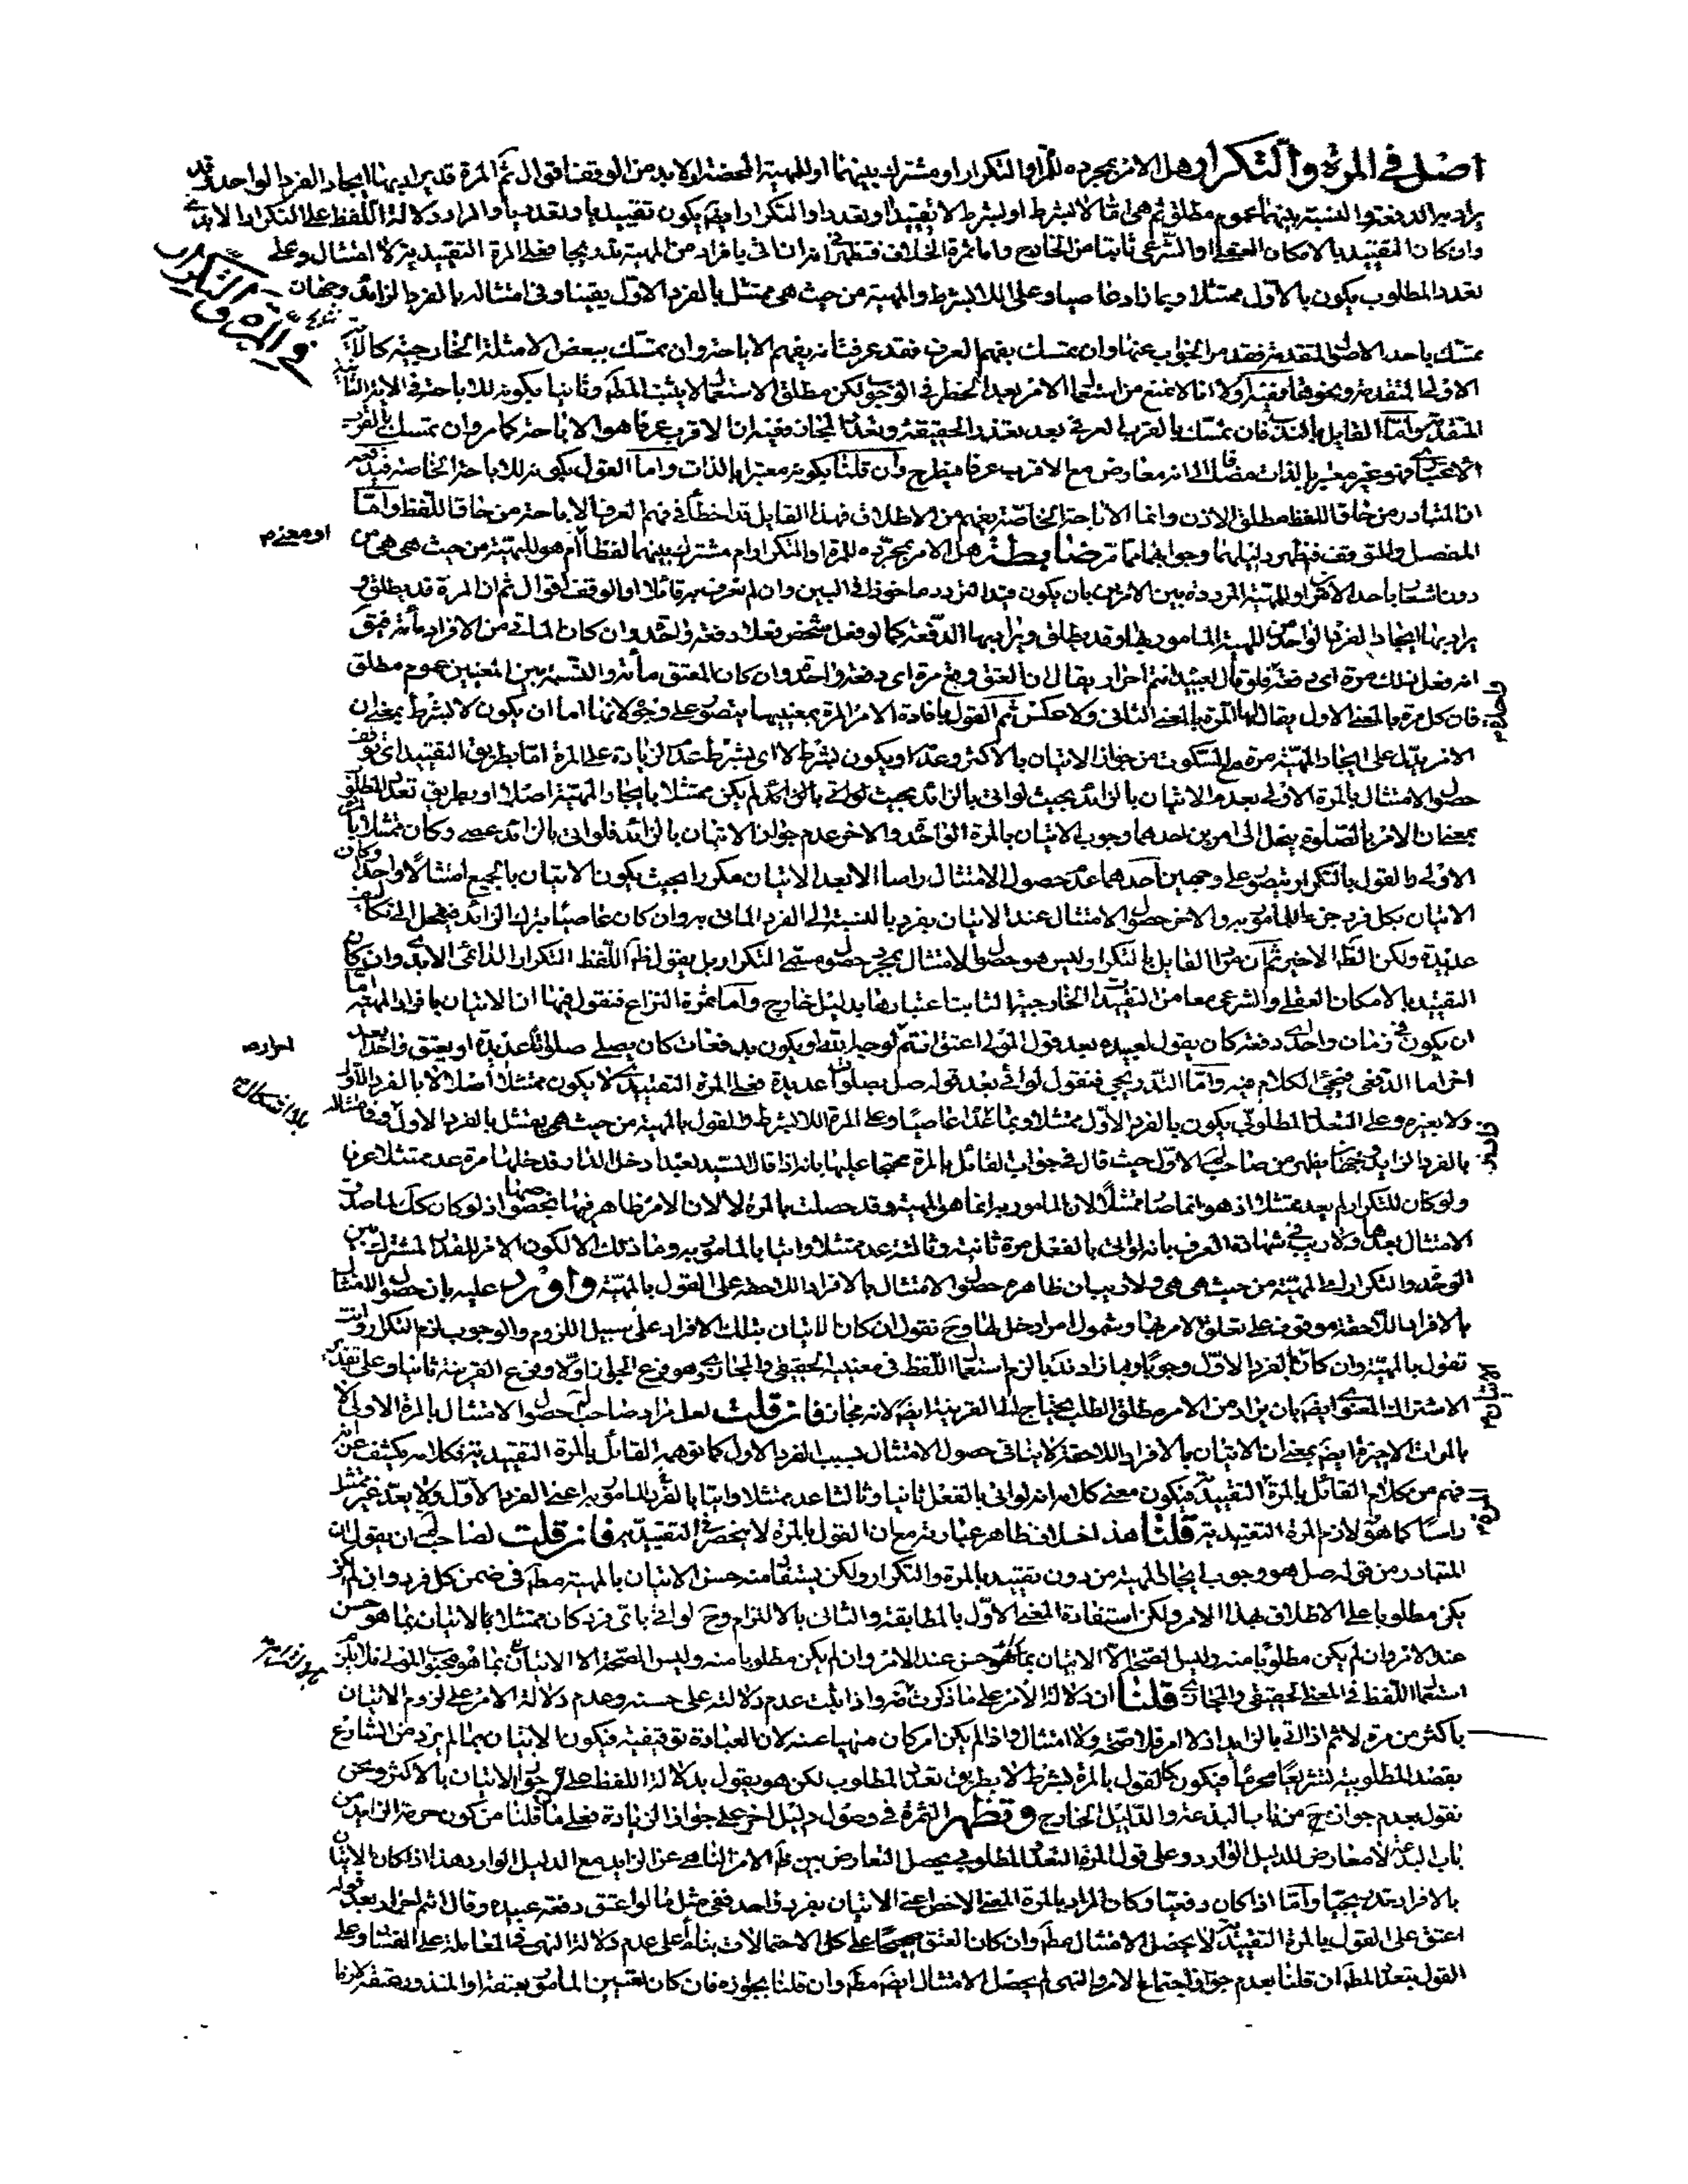 اصل فى المرة والتكرار هل الامر بمجرده للمرة او التكرار او مشترك بينهما او للمهية المحضة او لا بد من الوقف اقوال ثم المرة قد يراد بها ايجاد الفرد الواحد وقد
يراد بها الدفعة والنسبة بينهما عموم مطلق ثم هى اما لا بشرط او بشرط لا تقييدا او تعددا والتكرار ايضا يكون تقييديا وتعدديا والمراد دلالة اللفظ على التكرار الابدى
وان كان التقييد بالامكان العقلى او الشرعى ثابتا من الخارج واما ثمرة الخلاف فتظهر فى انه ان اتى بافراد من المهية تدريجا فعلى المرة التقييدية لا امتثال وعلى
تعدد المطلوب يكون بالاول ممتثلا وبما زاد عاصيا وعلى اللابشرط والمهية من حيث هى ممتثل بالفرد الاول يقينا وفى امتثاله بالفرد الزائد وجهان
فى المرة والتكرار
تمسك باحد الاصول المتقدمة فقد مر الجواب عنها وان تمسك بفهم العرف فقد عرفت انه يفهم الاباحة وان تمسك ببعض الامثلة الخارجية كالاية
الاولى المتقدمة ونحوها ففيه اولا انا لا نمنع من استعمال الامر بعد الحظر فى الوجوب لكن مطلق الاستعمال لا يثبت المط وثانيا بكونه للاباحة فى الاية
المتقدمة واما القايل بالندب فان تمسك بالقرب العرفى بعد تعذر الحقيقة وتعدد المجاز ففيه ان الاقرب عرفا هو الاباحة كما مر وان تمسك بالقرب
الاعتبارى فهو غير معتبر بالذات مضافا الى انه معارض مع الاقرب عرفا فيطرح وان قلنا بكونه معتبرا بالذات واما القول بكونه للاباحة الخاصة فيدفعه
ان المتبادر من حاق اللفظ مطلق الاذن وانما الاباحة الخاصة يفهم من الاطلاق فهذا القايل قد اخطأ فى فهم العرف الاباحة من حاق اللفظ واما
المفصل والمتوقف فيظهر دليلهما وجوابهما مما مر ضابطة هل الامر بمجرده للمرة او التكرار ام مشترك بينهما لفظا ام هو للمهية من حيث هى هى من
او معنى م
دون اشعار باحد الامرين او للمهية المرددة بين الامرين بان يكون قيد التردد ماخوذا فى البين وان لم نعرف به قائلا او الوقف اقوال ثم ان المرة قد يطلق و
يراد بها ايجاد الفرد الواحد من المهية المامور بها وقد يطلق ويراد بها الدفعة كما لو فعل شخص فعلا دفعة واحدة وان كان الماتى من الافراد مأة فيق
انه فعل ذلك مرة اى دفعة فلو قال لعبيده انتم احرار يقال ان العتق وقع مرة اى دفعة واحدة وان كان المعتق مأة والنسبة بين المعنيين عموم مطلق
فان كل مرة بالمعنى الاول يقال لها المرة بالمعنى الثانى ولا عكس ثم القول بافادة الامر المرة بمعنييها يتصور على وجوه لانها اما ان يكون لا بشرط بمعنى ان
الامر يدل على ايجاد المهية مرة مع السكوت من جواز الاتيان بالاكثر وعدمه او يكون بشرط لا اى بشرط عدم الزيادة على المرة اما بطريق التقييد اى توقف
حصول الامتثال بالمرة الاولى بعدم الاتيان بالزائد بحيث لو اتى بالزائد لم يكن ممتثلا بايجاد المهية اصلا او بطريق تعدد المطلوب
بمعنى ان الامر بالصلوة ينحل الى امرين احدهما وجوب الاتيان بالمرة الواحدة والاخر عدم جواز الاتيان بالزائد فلو اتى بالزائد عصى وكان ممتثلا بالمرة
الاولى والقول بالتكرار يتصور على وجهين احدهما عدم حصول الامتثال راسا الا بعد الاتيان مكررا بحيث يكون الاتيان بالجميع امتثالا واحدا وكان
الاتيان بكل فرد جزء المامور به والاخر حصول الامتثال عند الاتيان بفرد بالنسبة الى الفرد الماتى به وان كان عاصيا بترك الزائد فينحل الى تكاليف
عديدة ولكن الظ الاخير ثم ان مراد القايل بالتكرار ليس هو حصول الامتثال بمجرد حصول مسمى التكرار بل يقول ظ اللفظ التكرار الدائمى الابدى وان كان
التقييد بالامكان العقلى والشرعى معا من التقييدات الخارجية الثابت اعتبارها بدليل خارج واما ثمرة النزاع فنقول فيها ان الاتيان بافراد المهية اما
ان يكون فى زمان واحد اى دفعة كان يقول لعبيده بعد قول المولى اعتق انتم لوجه الله او يكون بدفعات كان يصلى صلوات عديدة او يعتق واحدا بعد
احرار صه
اخر اما الدفعى فيجئ الكلام فيه واما التدريجى فنقول لو اتى بعد قوله صل بصلوات عديدة فعلى المرة التقييدية لا يكون ممتثلا اصلا لا بالفرد الاول
ولا بغيره وعلى التعدد المطلوبى يكون بالفرد الاول ممتثلا وبما عداه عاصيا وعلى المرة اللابشرط والقول بالمهية من حيث هى يمتثل بالفرد الاول وفى امتثاله
بلا اشكال ح
بالفرد الزايد وجهان يظهر من صاحب لم الاول حيث قال فى جواب القائل بالمرة محتجا عليها بانه اذا قال السيد لعبده ادخل الدار فدخلها مرة عد ممتثلا عرفا
ولو كان للتكرار لم يعد ممتثلا اذ هو انما صار ممتثلا لان المامور به انما هو المهية وقد حصلت بالمرة لا لان الامر ظاهر فيها بخصوصها اذ لو كان كذلك لما صدق
الامتثال بعدها ولا ريب فى شهادة العرف بانه لو اتى بالفعل مرة ثانية وثالثة عد ممتثلا واتيا بالمامور به وما ذلك الا لكون الامر للقدر المشترك بين
الوحدة والتكرار اى المهية من حيث هى هى ولا ريب ان ظاهره حصول الامتثال بالافراد اللاحقة على القول بالمهية واورد عليه بان حصول الامتثال
بالافراد اللاحقة موقوف على تعلق الامر بها وشمول امر ادخل لها وح نقول ان كان الاتيان بتلك الافراد على سبيل اللزوم والوجوب لزم التكرار وانت
تقول بالمهية وان كان الفرد الاول وجوبا وما زاد ندبا لزم استعمال اللفظ فى معنييه الحقيقى والمجازى وهو فرع الجواز اولا وفرع القرينة ثانيا وعلى تقدير
الاشتراك المعنوى ايضا بان يراد من الامر مطلق الطلب يحتاج الى القرينة ايضا لانه مجاز فان قلت لعل مراد صاحب لم حصول الامتثال بالمرة الاولى لا
بالمرات الاخيرة ايضا بمعنى ان الاتيان بالافراد اللاحقة لا ينافى حصول الامتثال بسبب الفرد الاول كما توهمه القائل بالمرة التقييدية فكلامه يكشف عن انه
فهم من كلام القائل بالمرة المرة التقييدية فيكون معنى كلامه انه لو اتى بالفعل ثانيا وثالثا عد ممتثلا واتيا بالفرد المامور به اعنى الفرد الاول ولا يعد غير ممتثل
راسا كما هو لازم المرة التقييدية قلنا هذا خلاف ظاهر عبارته مع ان القول بالمرة لا ينحصر فى التقييدية فان قلت لصاحب لم ان يقول ان
المتبادر من قوله صل هو وجوب ايجاد المهية من دون تقييد بالمرة والتكرار ولكن يستفاد منه حسن الاتيان بالمهية مط فى ضمن كل فرد وان لم
يكن مطلوبا على الاطلاق بهذا الامر ولكن استفادة المعنى الاول بالمطابقة والثانى بالالتزام وح لو اتى باى فرد كان ممتثلا بالاتيان بما هو حسن
عند الامر وان لم يكن مطلوبا منه وليس الصحة الا الاتيان بما هو حسن عند الامر وان لم يكن مطلوبا منه وليس الصحة الا الاتيان بما هو محبوب المولى فلا يلزم
استعمال اللفظ فى المعنى الحقيقى والمجازى قلنا ان دلالة الامر على ما ذكرت واذا ثبت عدم دلالته على حسنه وعدم دلالة الامر على لزوم الاتيان
باكثر من مرة لا ثم اذا اتى بالزايد اذ لا امر فلا صحة ولا امتثال واذا لم يكن امر كان منهيا عنه لان العبادة توقيفية فيكون الاتيان بما لم يرد من الشارع
بقصد المطلوبية تشريعا محرما فيكون كالقول بالمرة بشرط لا بطريق تعدد المطلوب لكن هو يقول بدلالة اللفظ على عدم جواز الاتيان بالاكثر ونحن
نقول بعدم جوازه ح من باب البدعة والدليل الخارج وتظهر الثمرة فى وصول دليل اخر على جواز الزيادة فعلى ما قلنا من كون حرمة الزايد من
باب البدعة لا معارض للدليل الوارد وعلى قول المرة التعدد المطلوبى يحصل التعارض بين ظ الامر الناهى عن الزايد مع الدليل الوارد هذا اذا كان الاتيان
بالافراد تدريجيا واما اذا كان دفعيا وكان المراد بالمرة المعنى الاخص اعنى الاتيان بفرد واحد ففى مثل ما لو اعتق دفعة عبيده وقال انتم احرار بعد قوله
اعتق على القول بالمرة التقييدية لا يحصل الامتثال مط وان كان العتق صحيحا على كل الاحتمالات بناء على عدم دلالة النهى فى المعاملة على الفساد وعلى
القول بتعدد المط ان قلنا بعدم جواز اجتماع الامر والنهى لم يحصل الامتثال ايضا مط وان قلنا بجوازه فان كان تعيين المامور بعتقه او المنذور بعتقه لازما